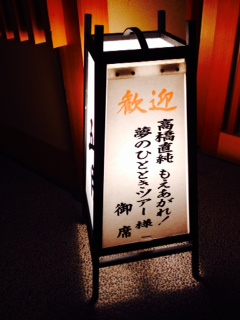 歓迎
高橋直純 もえあがれ!
夢のひとときツアー 様
御席